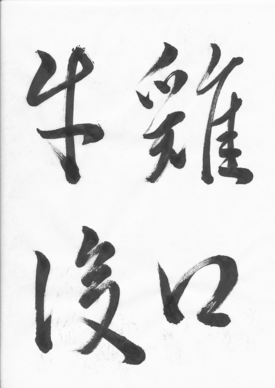 雞口
牛後